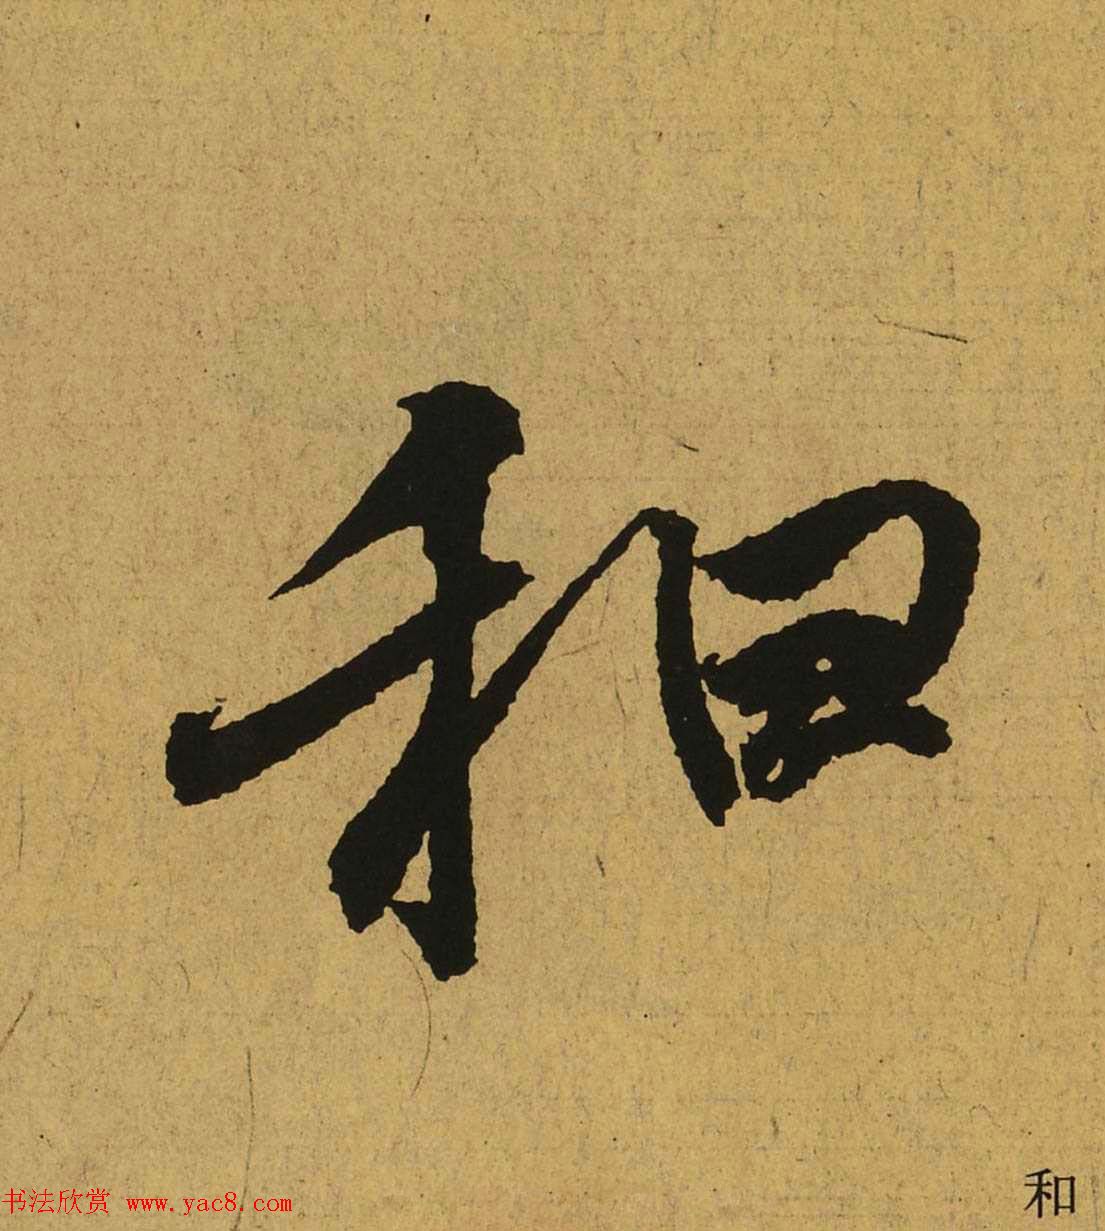 和
和
书法欣赏 www.yac8.com